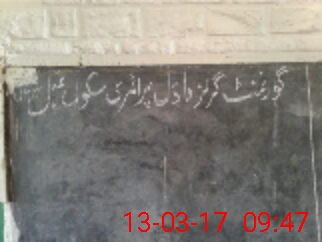 گورنمنٹ گرلز ماڈل پرائمری سکول
13-03-17 09:47